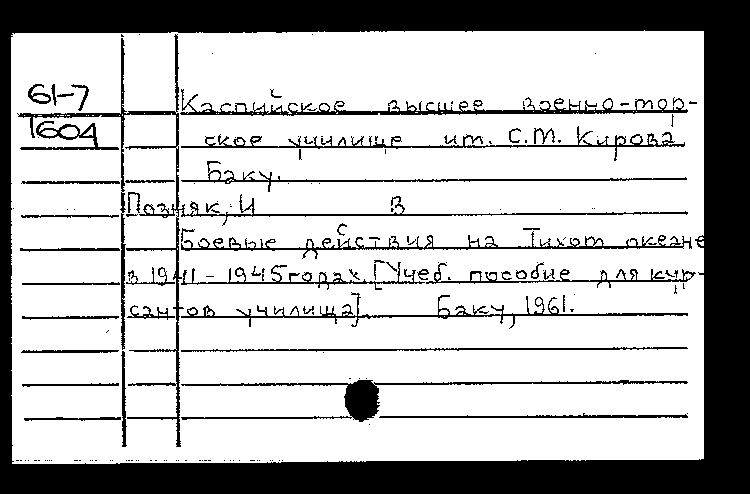 61-7
1604
Каспийское высшее военно-мор-
ское училище им. С.М. Кирова
Баку.
Позняк, И В
Боевые действия на Тихом океане
в 1941-1945 годах. [Учеб. пособие для кур-
сантов училища]. Баку, 1961.